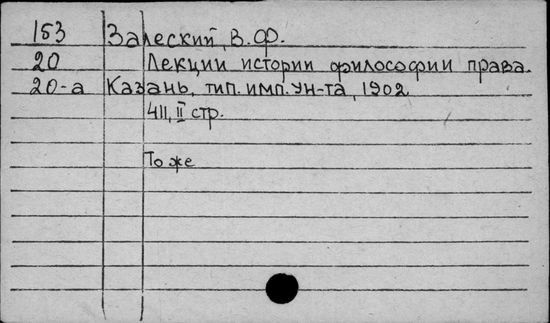 153 Залеский, В.Ф.
20 Лекции истории философии права.
20-а Казань, тип. имп. ун-та, 1902
411, II стр.
То же